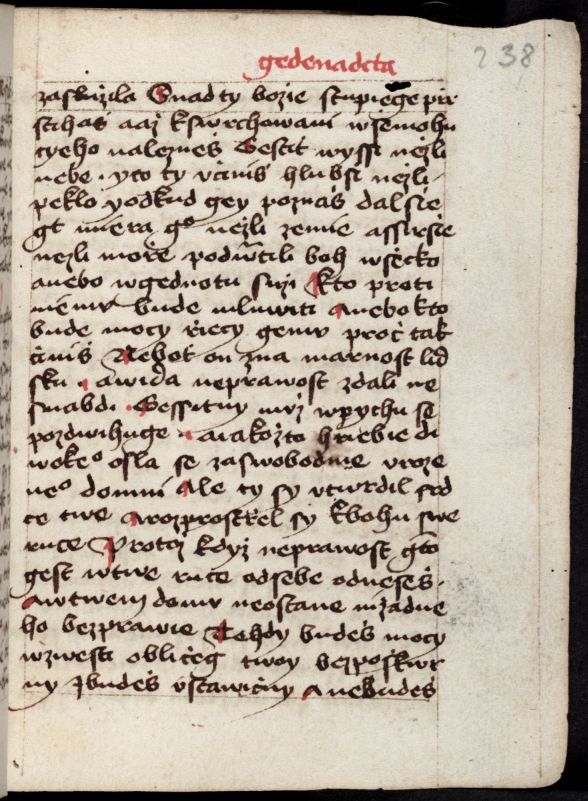 gedenadcta
238
zasluzila Snad ty bozie stupiegě pir
stihaš aaž kswrchowani wšemohu
cyeho nalezneš Gestit wyssi nežli
nebe · yto ty včiniš hlubsi nezli
peklo yodkud gey poznaš dalsie
gt miera go nežli zemie assirsie
nezli moře podwrtili boh wšecko
anebo wgednotu suzi Kto proti
niemu bude mluwiti Anebo kto
bude mocy řiecy gemu proč tak
činiš Nebot on zna marnost lid
sku · awida neprawost zdali ne
snabdi · Gessitny muž wpychu se
pozdwihuge · aiakožto hřiebie di
wokeo osla se zaswobodnie vroze
neo domni Ale ty sy vtwrdil srd
ce twe Arozprostřel sy kbohu swe
ruce Protož kdyz neprawost gto
gest wtwe ruce odsebe odneseš ·
Awtwem domu neostane nižadne
ho bezprawie Tehdy budeš mocy
wzwesti obličeg twoy bezposkwr
ny Ibudeš vstawičny Anebudeš